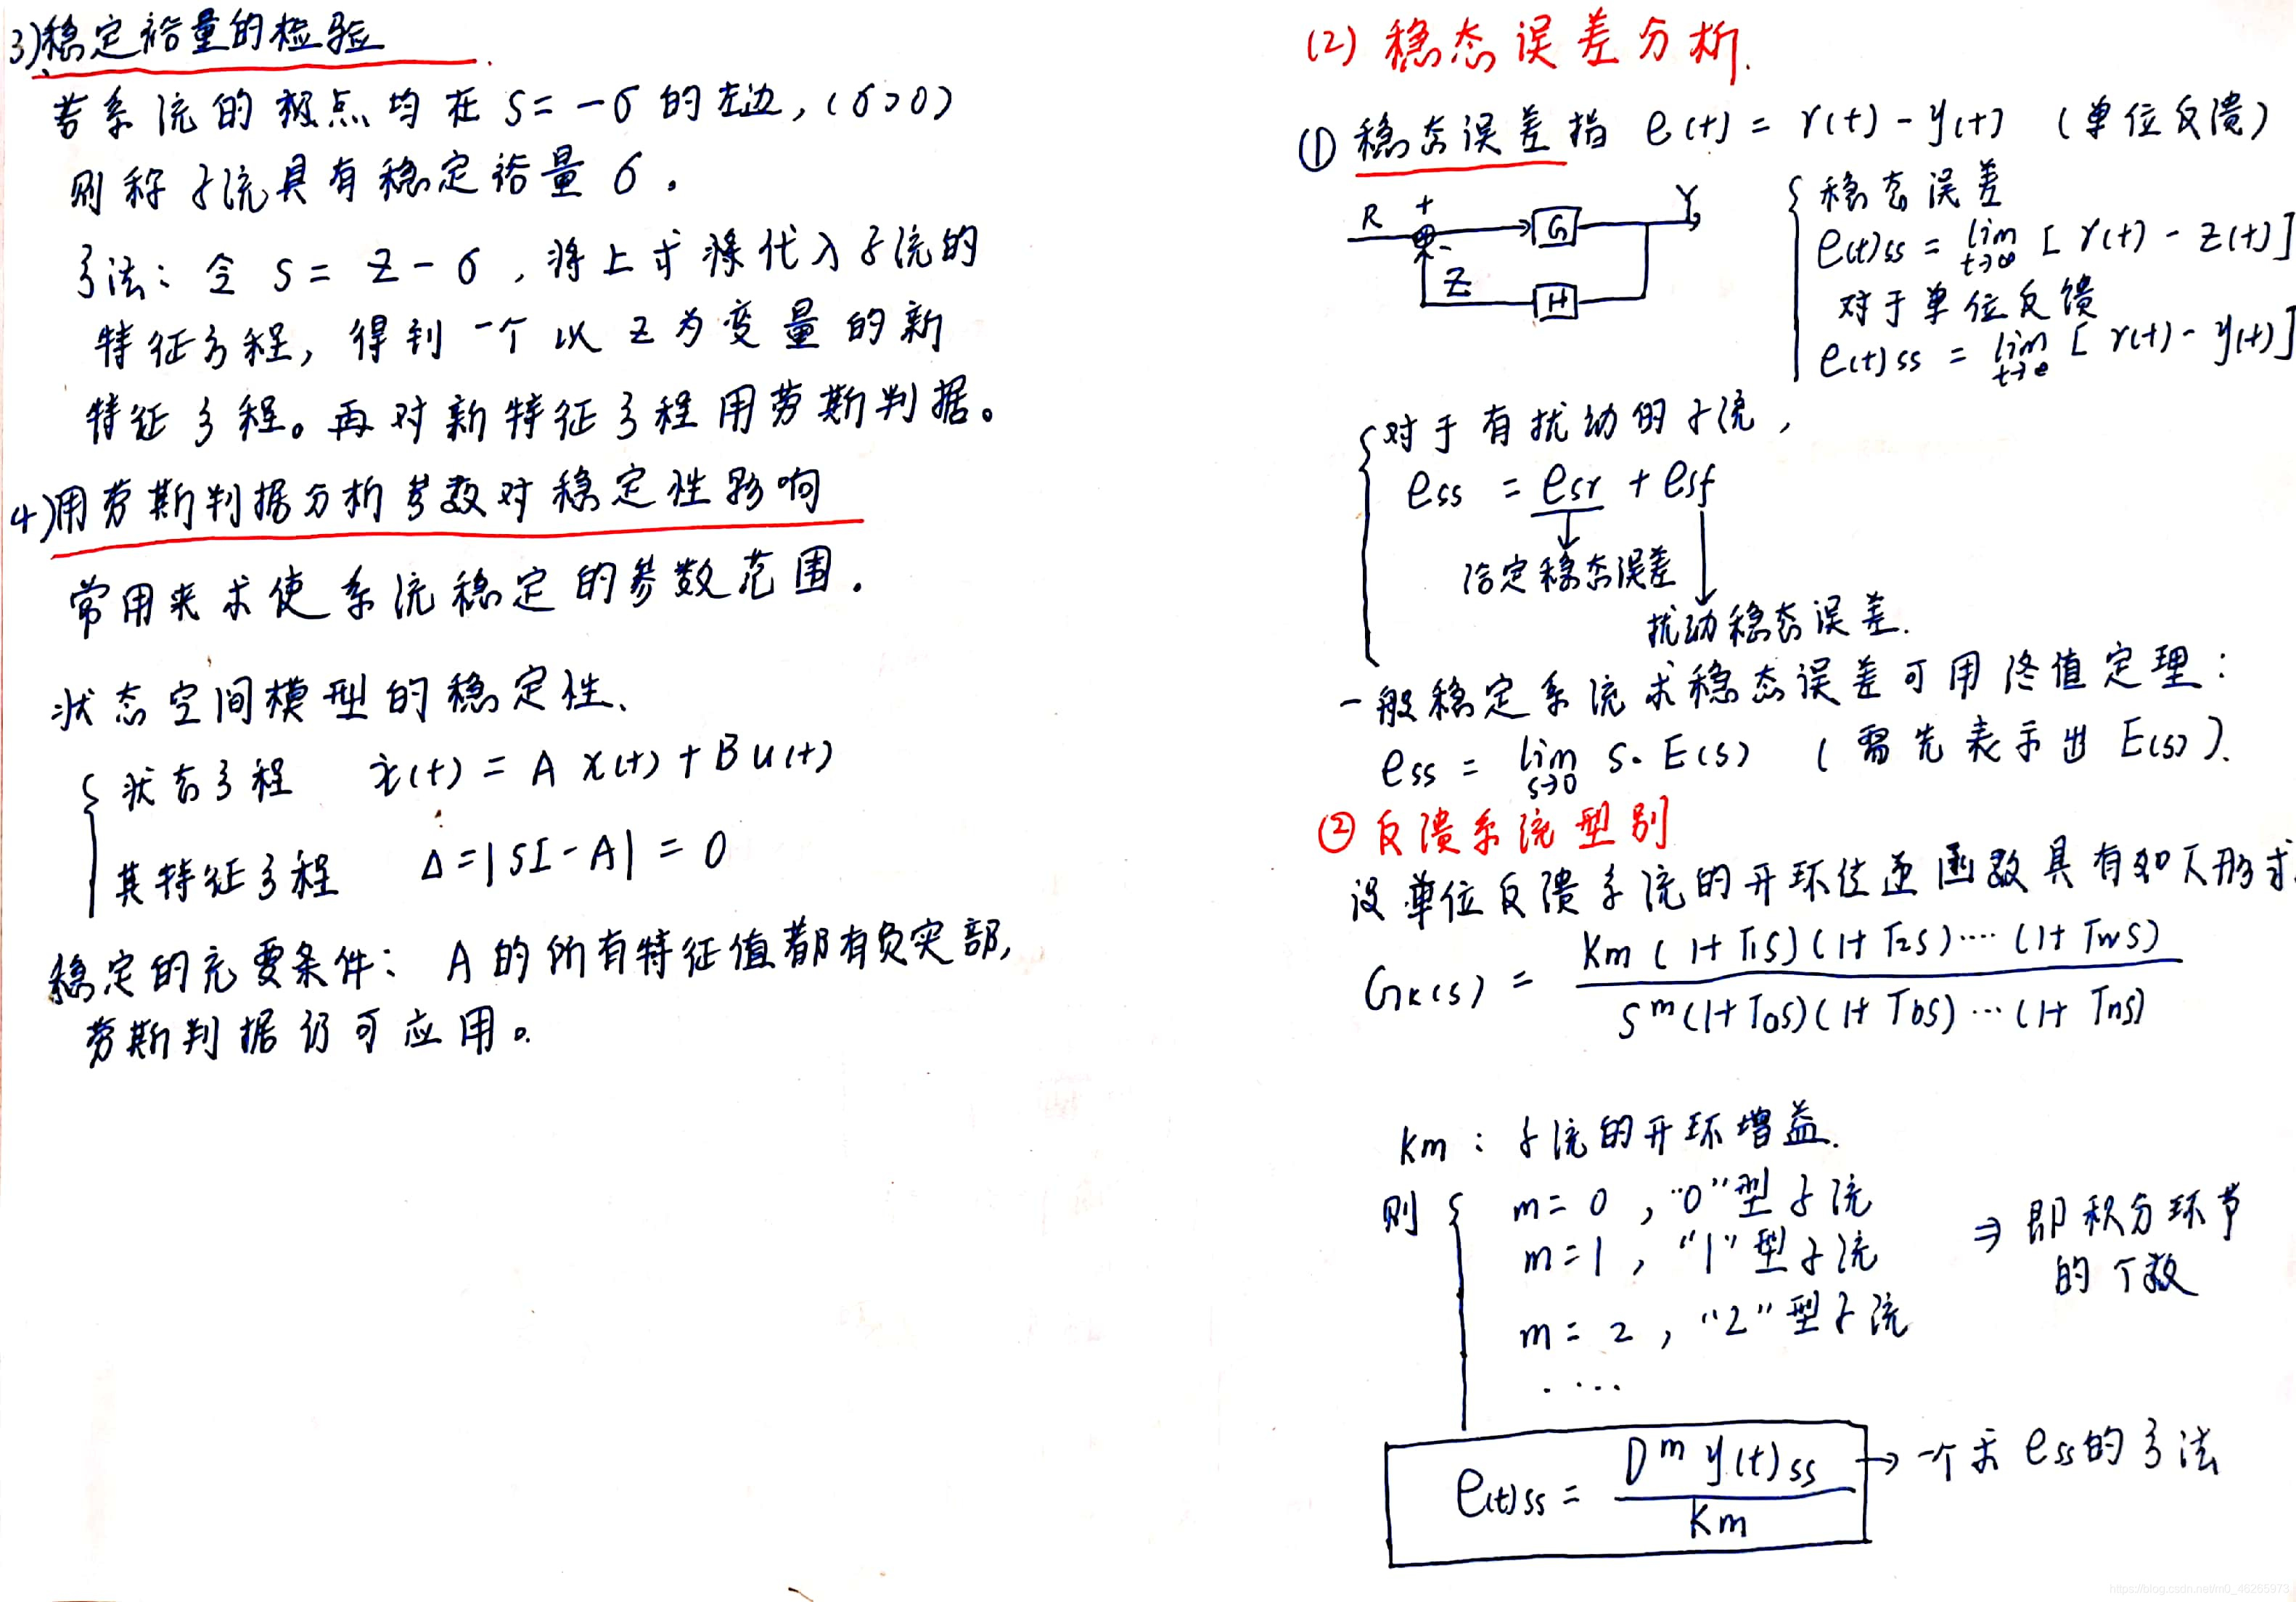 3)稳定裕量的检验
若系统的极点均在 S= -σ 的左边,(σ>0)
则称系统具有稳定裕量 σ 。
方法: 令 S = Z - σ , 将上式 代入系统的
特征方程, 得到一个以 Z 为变量的新
特征方程。再对新特征方程用劳斯判据。
4)用劳斯判据分析参数对稳定性影响
常用来求使系统稳定的参数范围.
状态空间模型的稳定性、
状态方程 ẋ(t) = A x(t) + B u(t)
其特征方程 Δ=|SI-A| = 0
稳定的充要条件: A的所有特征值都有负实部,
劳斯判据仍可应用。
(2) 稳态误差分析.
① 稳态误差指 e(t) = r(t) - y(t) (单位反馈)
R + G Y
- Z H
稳态误差
e(t)ss = lim t→∞ [ r(t) - z(t)]
对于单位反馈
e(t)ss = lim [ r(t) - y(t)]
对于有扰动的系统,
ess = esr + esf
给定稳态误差
扰动稳态误差.
一般稳定系统求稳态误差可用终值定理:
ess = lim s→0 S· E(s) (需先表示出 E(s)).
② 反馈系统型别
设单位反馈系统的开环传递函数具有如下形式
GK(s) = Km ( 1+ T1S)(1+ T2S)···· (1+ TwS) / S^m (1+ TaS)(1+ TbS) ··· (1+ TnS)
Km : 系统的开环增益.
则 m= 0 , "0"型系统
m=1 , "1"型系统 ⇒ 即积分环节
的个数
m= 2 , "2"型系统
· ···
e(t)ss = D^m y(t)ss / Km → 一个求 ess的方法
https://blog.csdn.net/m0_46265973